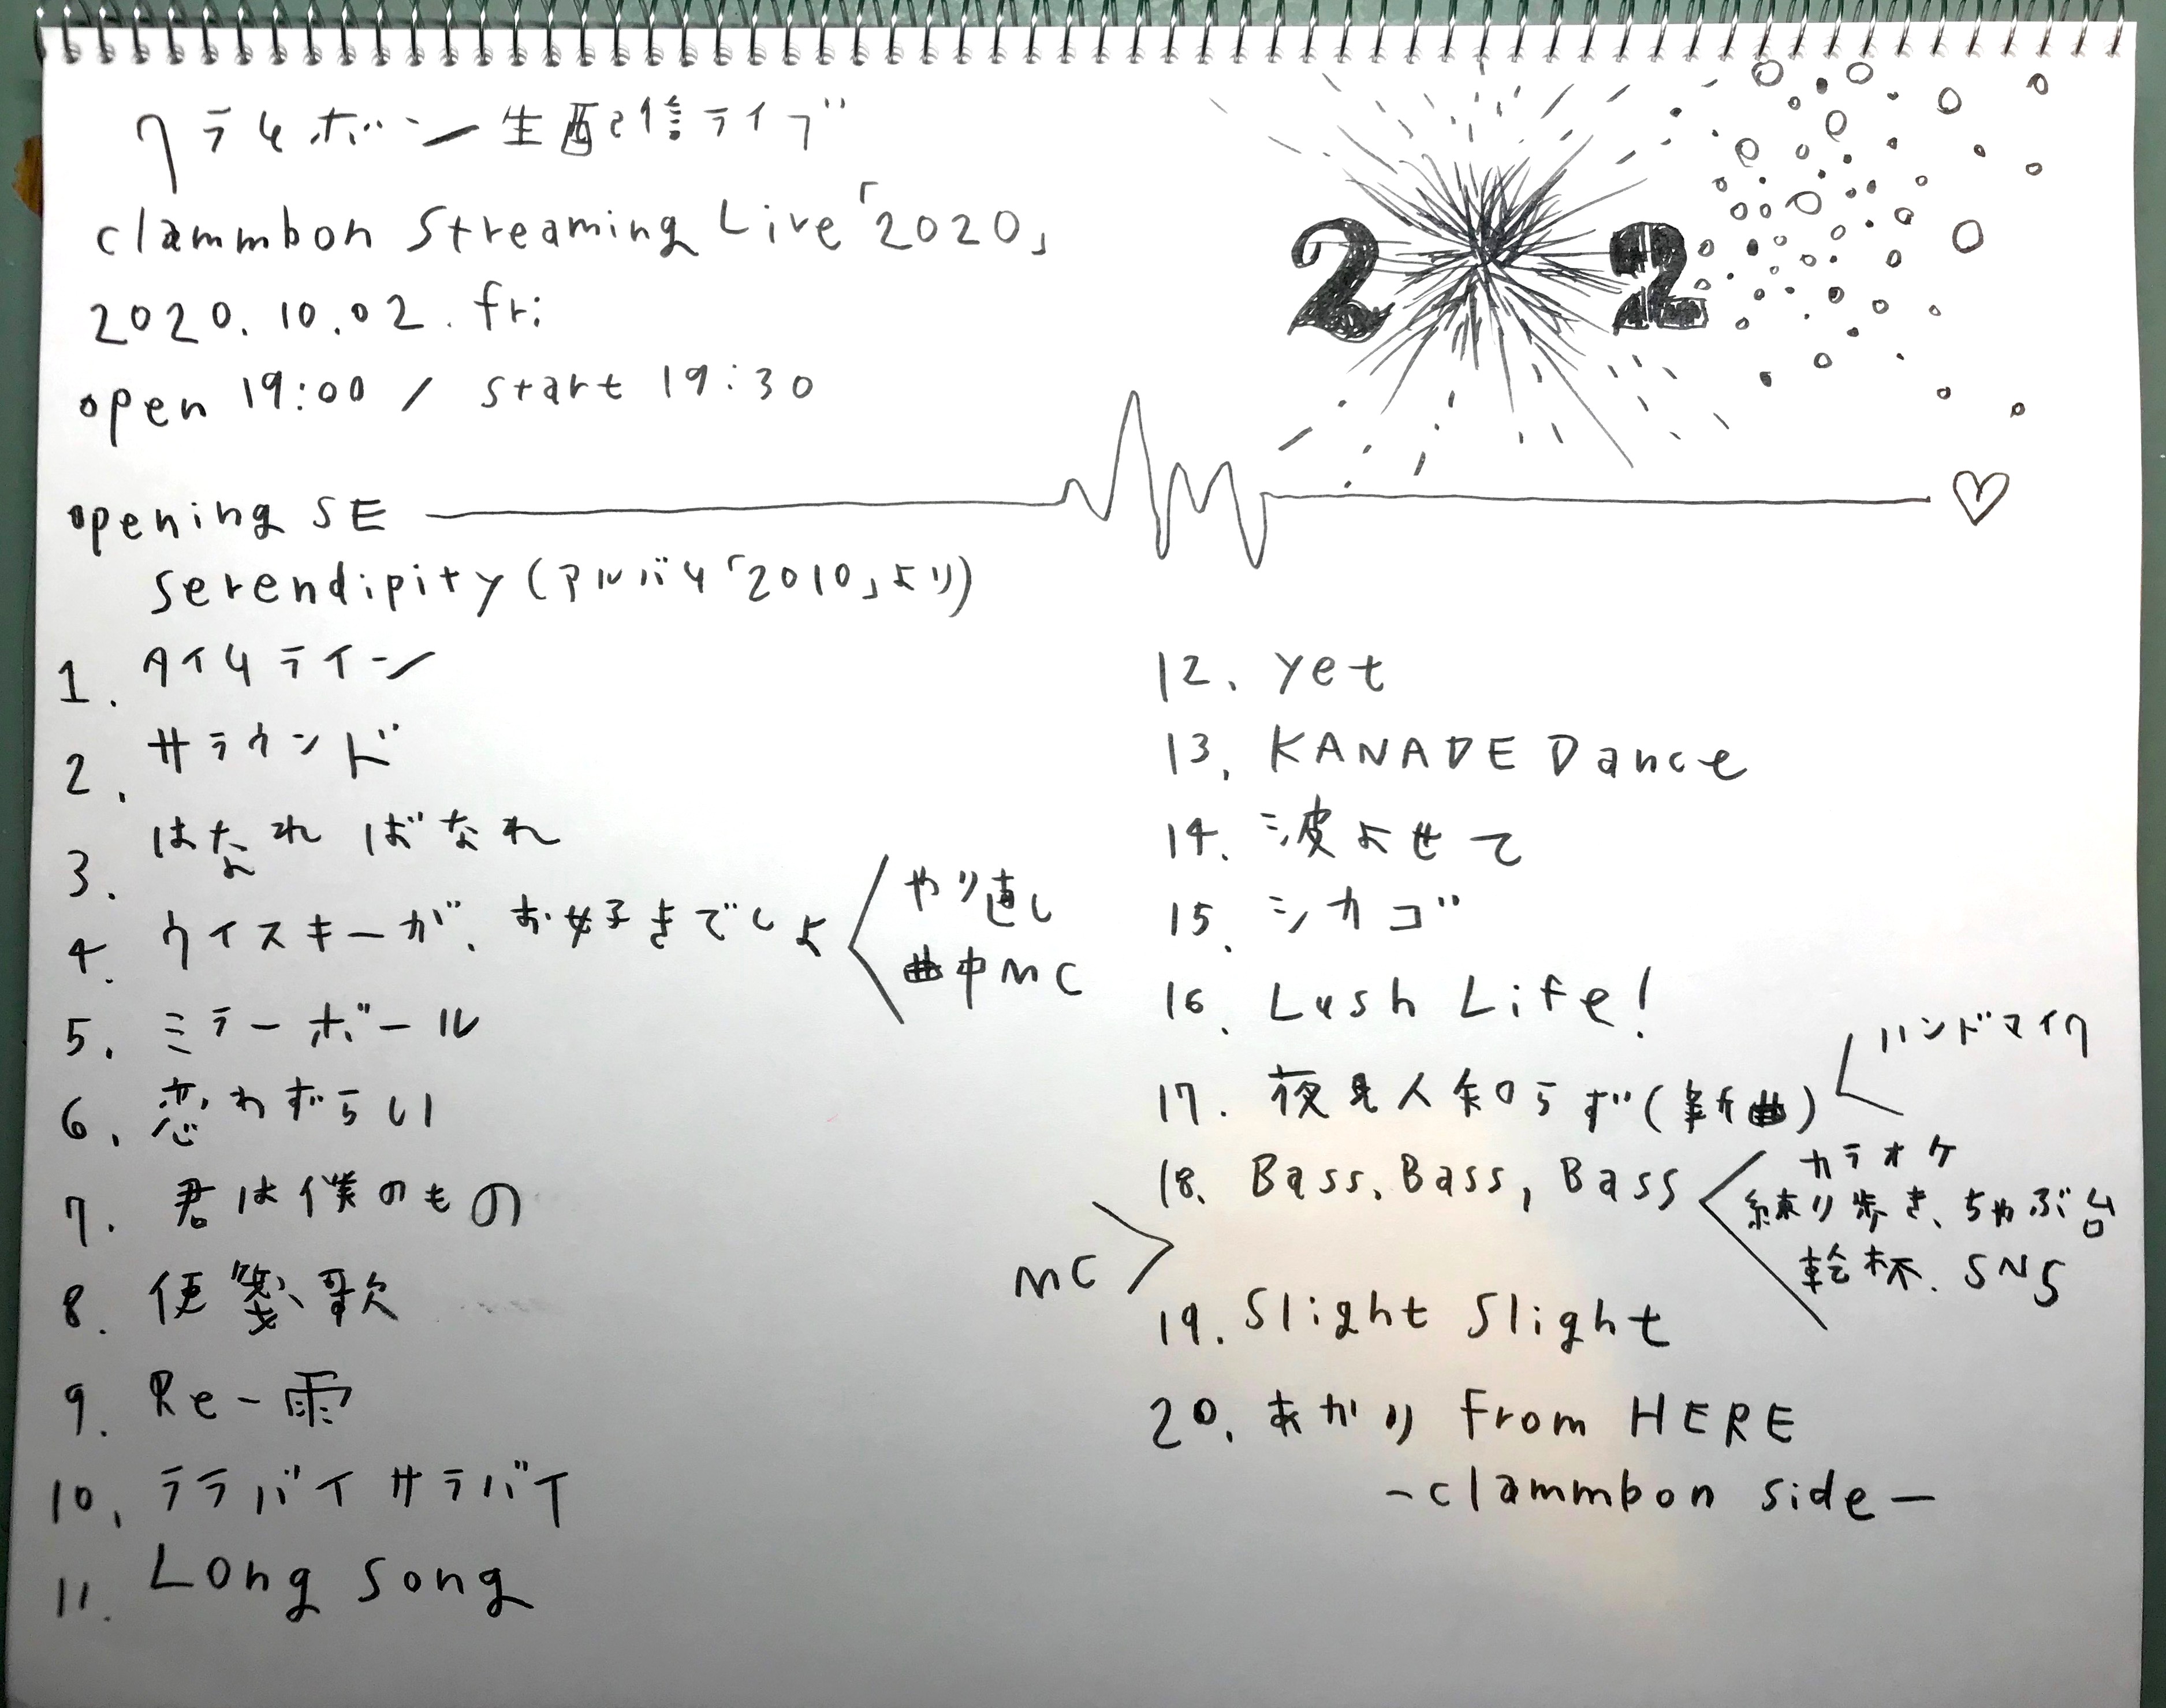 クラムボン生配信ライブ
clammbon Streaming Live「2020」
2020.10.02.fri
open 19:00 / start 19:30
2 2
opening SE
serendipity(アルバム「2010」より)
1. タイムライン
2. サラウンド
3. はなればなれ
4. ウイスキーが、お好きでしょ
やり直し
曲中MC
5. ミラーボール
6. 恋わずらい
7. 君は僕のもの
8. 便箋歌
9. Re-雨
10. ララバイサラバイ
11. Long Song
12. yet
13. KANADE Dance
14. 波よせて
15. シカゴ
16. Lush Life!
17. 夜見人知らず(新曲)
ハンドマイク
18. Bass, Bass, Bass
カラオケ
練り歩き、ちゃぶ台
乾杯、SNS
MC
19. Slight Slight
20. あかり from HERE
-clammbon side-